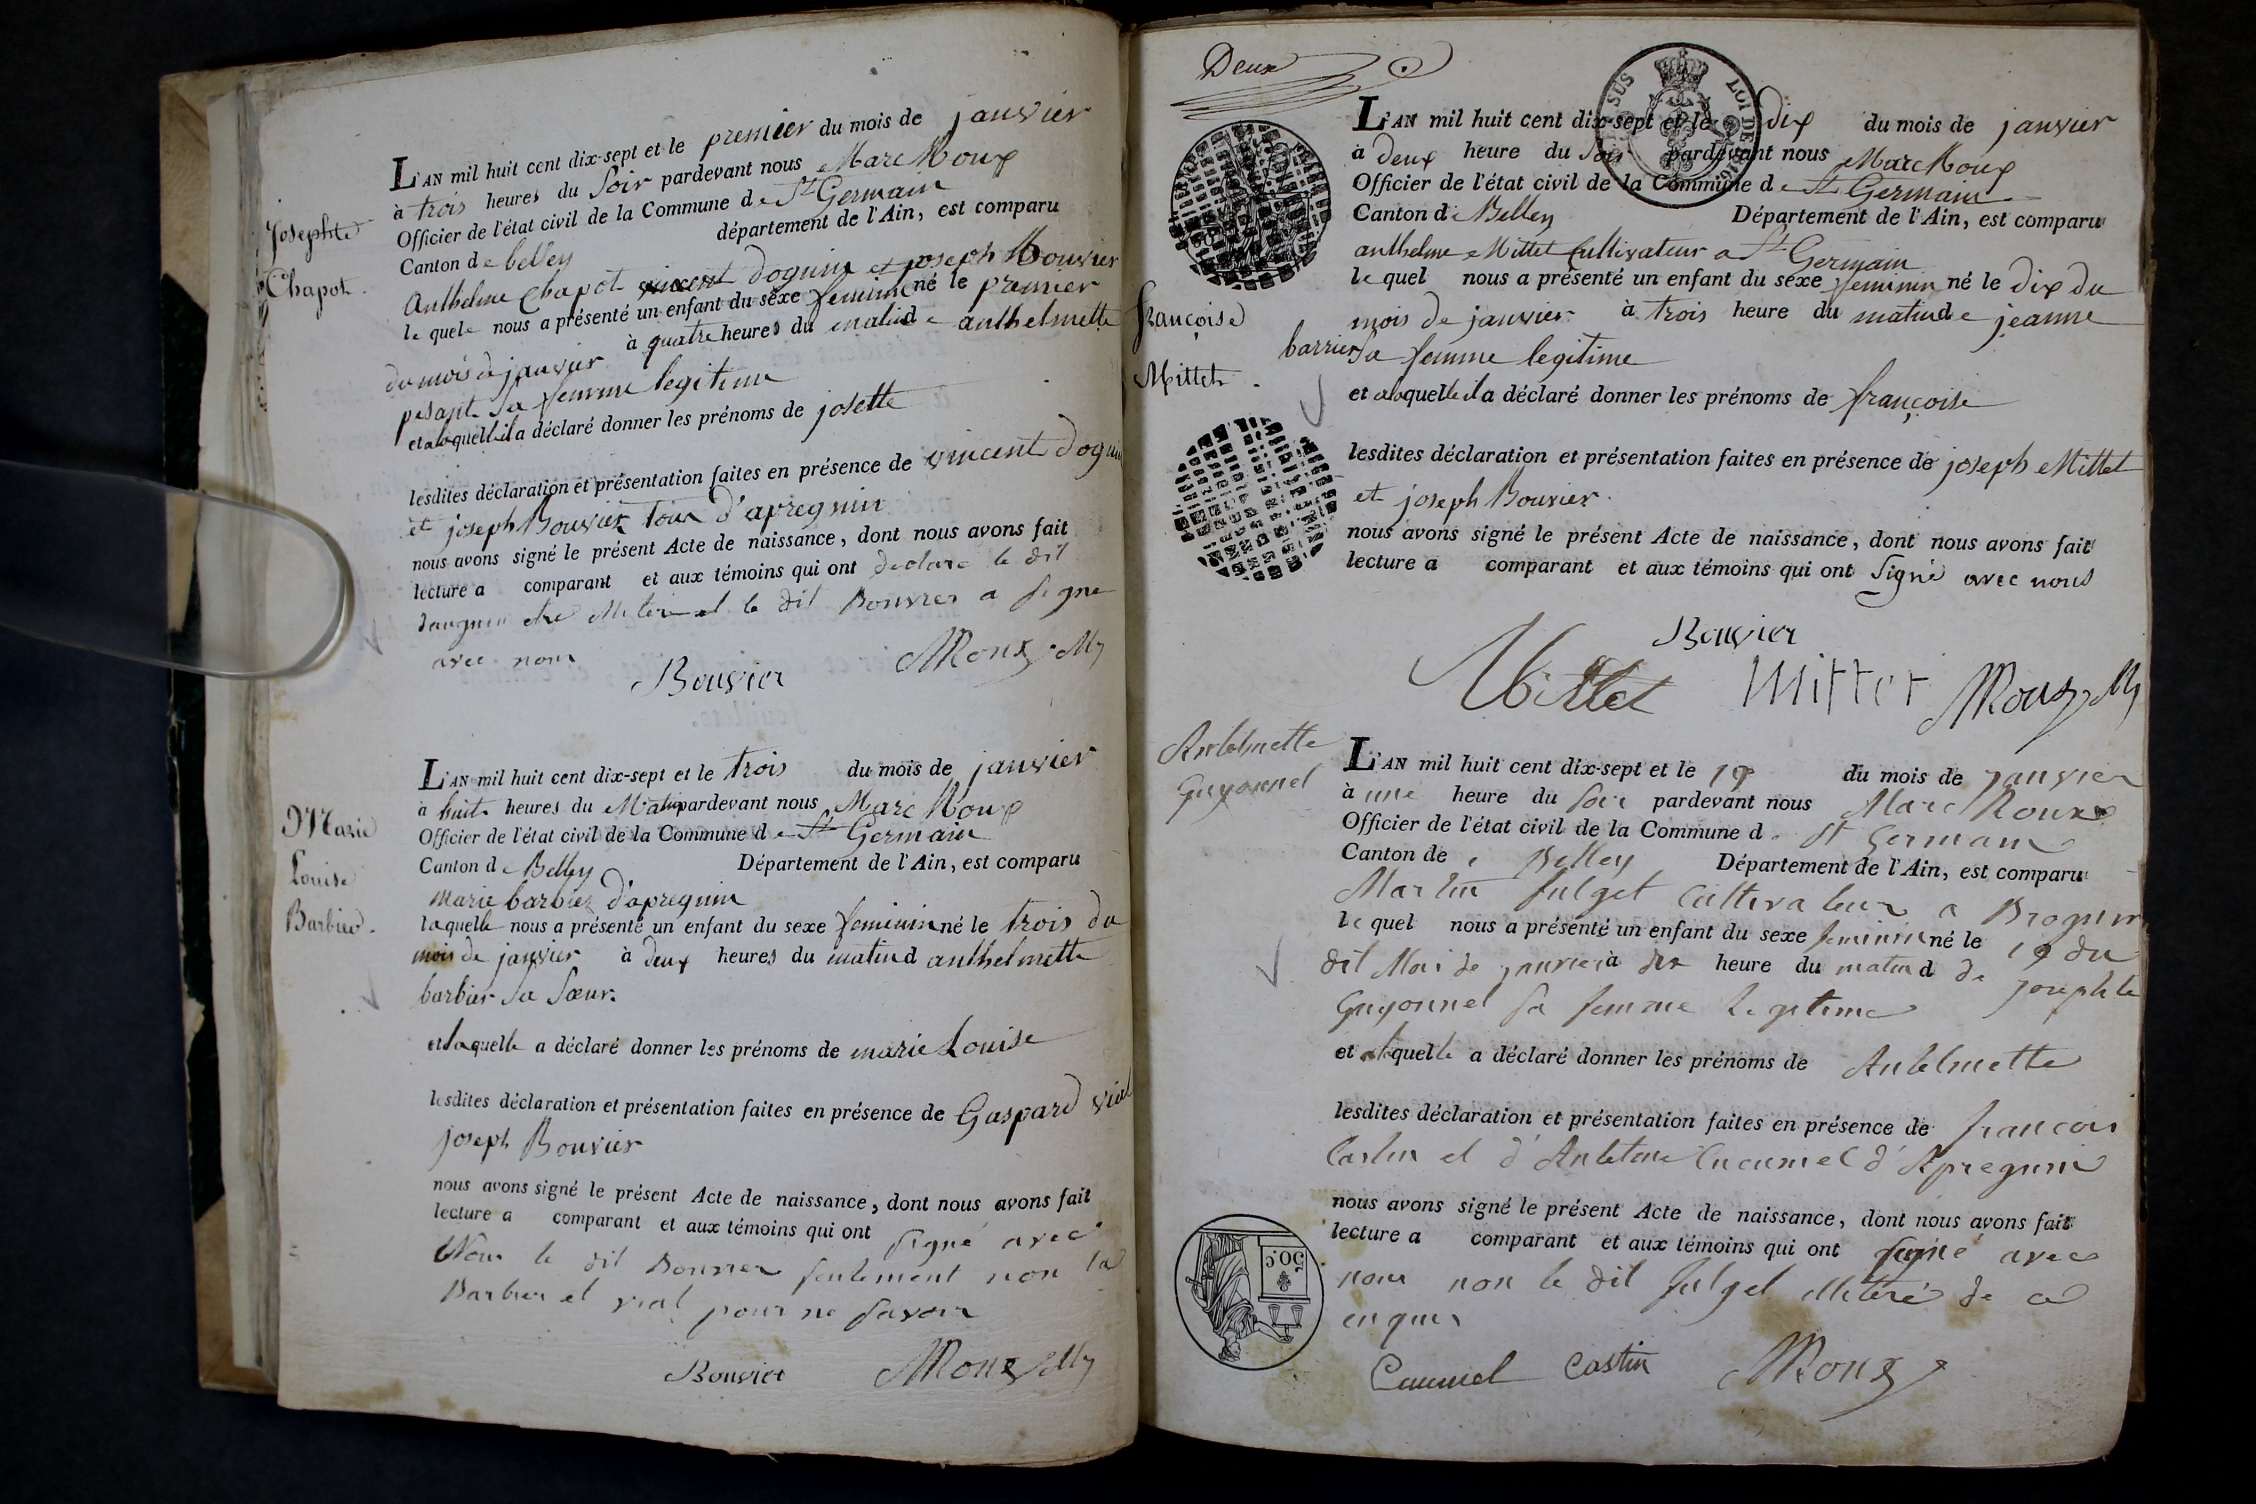 Josephte
Chapot.
L'AN mil huit cent dix-sept et le premier du mois de janvier
à trois heures du soir pardevant nous Marc Roux
Officier de l'état civil de la Commune de St Germain
Canton de belley département de l'Ain, est comparu
Anthelme Chapot vincent doguin et joseph Bouvier
le quel nous a présenté un enfant du sexe feminin né le premier
du mois de janvier à quatre heures du matin d e anthelmette
pesant sa femme legitime
et a laquelle il a déclaré donner les prénoms de josette
lesdites déclaration et présentation faites en présence de vincent doguin
et joseph Bouvier tour d'apregnin
nous avons signé le présent Acte de naissance, dont nous avons fait
lecture a comparant et aux témoins qui ont declare le dit
douguin etre illeteré et le dit Bouvier a signe
avec nous
Bouvier MRoux My
Marie
Louise
Barbier.
L'AN mil huit cent dix-sept et le trois du mois de janvier
à huit heures du Matin pardevant nous Marc Roux
Officier de l'état civil de la Commune d e St Germain
Canton d e Belley Département de l'Ain, est comparu
marie barbier d'apregnin
laquelle nous a présenté un enfant du sexe feminin né le trois du
mois de janvier à deux heures du matin d anthelmette
barbier sa sœur.
et laquelle a déclaré donner les prénoms de marie Louise
lesdites déclaration et présentation faites en présence de Gaspard vial
joseph Bouvier
nous avons signé le présent Acte de naissance, dont nous avons fait
lecture a comparant et aux témoins qui ont signé avec
Nous le dit Bouvier seulement non la
Barbier et vial pour ne savoir
Bouvier MRoux My
Deux
SUS LOI DE 1816
françoise
Mittet.
L'AN mil huit cent dix-sept et le dix du mois de janvier
à deux heure du soir pardevant nous Marc Roux
Officier de l'état civil de la Commune d e St Germain
Canton d e Belley Département de l'Ain, est comparu
anthelme Mittet Cultivateur a St Germain
le quel nous a présenté un enfant du sexe feminin né le dix du
mois de janvier à trois heure du matin d e jeanne
barrier sa femme legitime
et a laquelle il a déclaré donner les prénoms de françoise
lesdites déclaration et présentation faites en présence de joseph Mittet
et joseph Bouvier.
nous avons signé le présent Acte de naissance, dont nous avons fait
lecture a comparant et aux témoins qui ont signé avec nous
Bouvier
Mittet Mittet MRoux My
Antelmette
Guyonnel
L'AN mil huit cent dix-sept et le 19 du mois de janvier
à une heure du soir pardevant nous Marc Roux
Officier de l'état civil de la Commune d e St Germain
Canton de Belley Département de l'Ain, est comparu
Martin fulget Cultivateur a Brognin
le quel nous a présenté un enfant du sexe feminin né le 19 du
dit Mois de janvier à dix heure du matin d de josephte
Guyonnel sa femme legitime
et a laquelle a déclaré donner les prénoms de Antelmette
lesdites déclaration et présentation faites en présence de francois
Castin et d'Antelme Cucumel d'Apregnin
nous avons signé le présent Acte de naissance, dont nous avons fait
lecture a comparant et aux témoins qui ont signé avec
nous non le dit fulget illiteré de ce
enquis
50c
Cucumel Castin MRoux